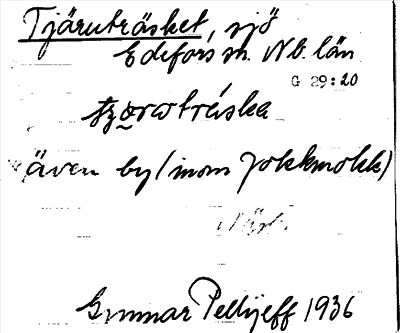 Tjäruträsket, sjö
Edefors sn. Nb. län
G 29:20
även by (inom Jokkmokk)
Gunnar Pellijeff 1936